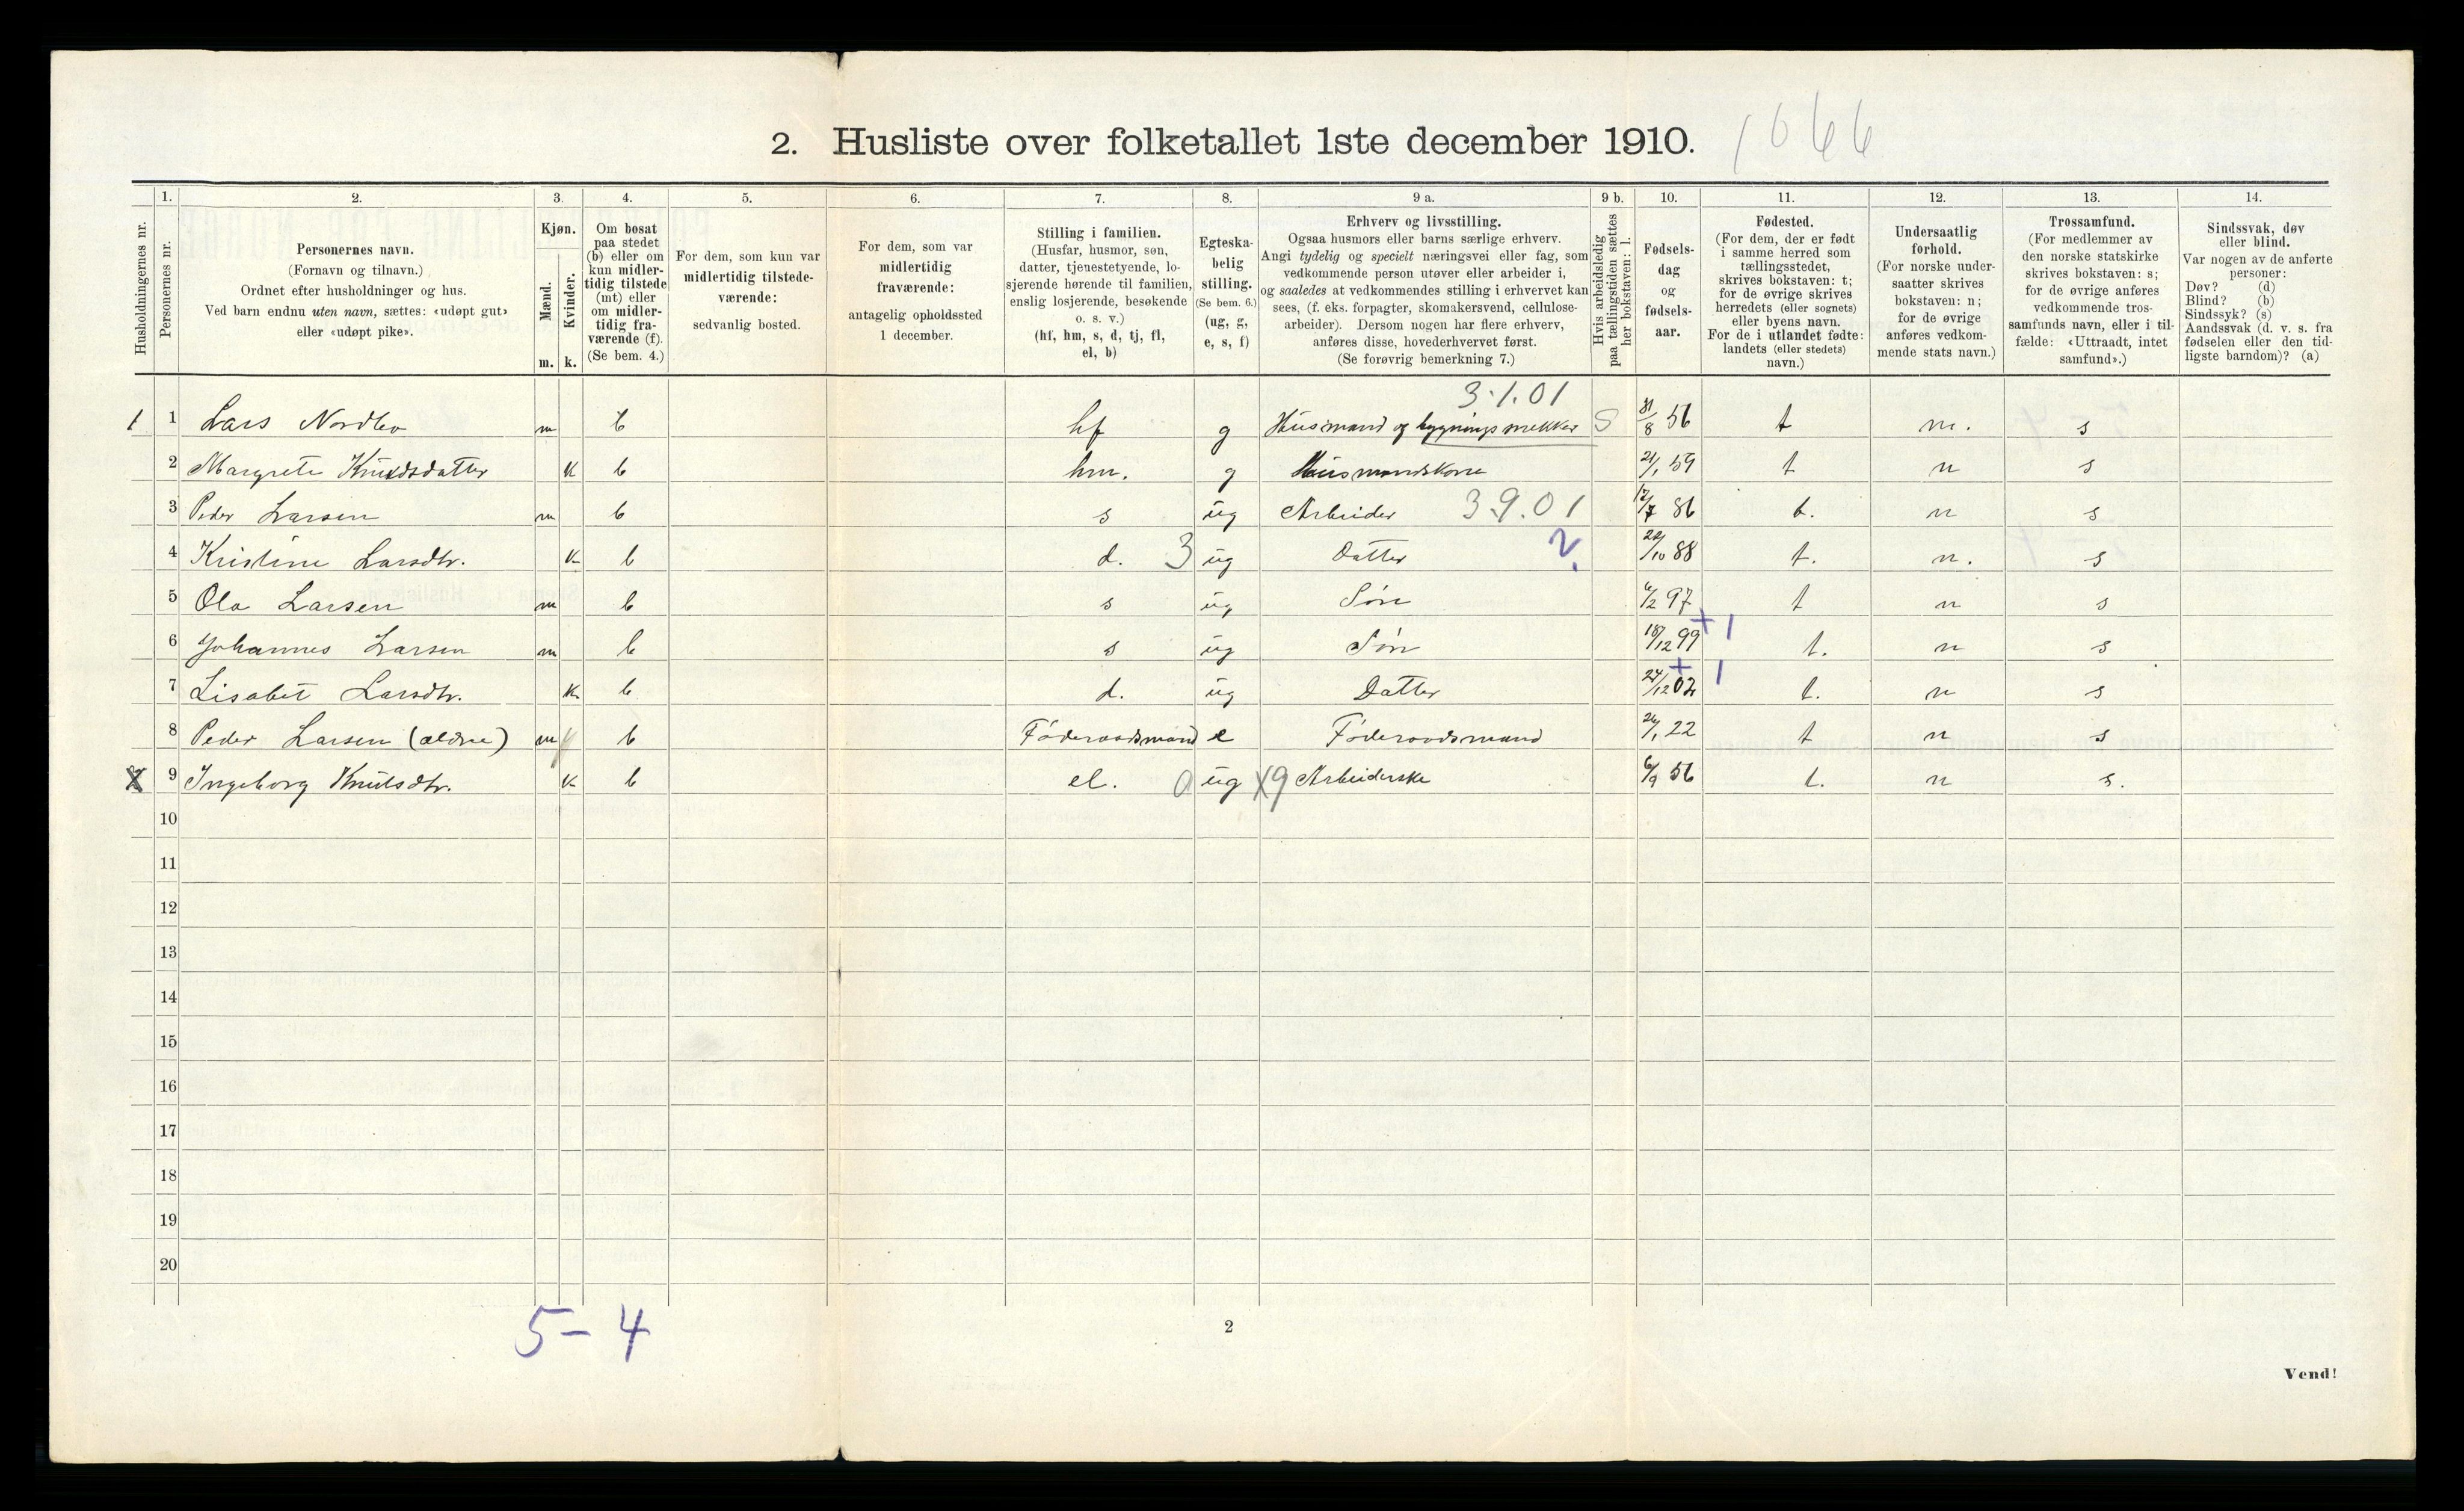 2. Husliste over folketallet 1ste december 1910. 1066
Husholdningernes nr.
1. Personernes nr.
2. Personernes navn. (Fornavn og tilnavn.) Ordnet efter husholdninger og hus. Ved barn endnu uten navn, sættes: «udøpt gut» eller «udøpt pike».
3. Kjøn. Mænd. m. Kvinder. k.
4. Om bosat paa stedet (b) eller om kun midlertidig tilstede (mt) eller om midlertidig fraværende (f). (Se bem. 4.)
5. For dem, som kun var midlertidig tilstedeværende: sedvanlig bosted.
6. For dem, som var midlertidig fraværende: antagelig opholdssted 1 december.
7. Stilling i familien. (Husfar, husmor, søn, datter, tjenestetyende, losjerende hørende til familien, enslig losjerende, besøkende o. s. v.) (hf, hm, s, d, tj, fl, el, b)
8. Egteskabelig stilling. (Se bem. 6.) (ug, g, e, s, f)
9 a. Erhverv og livsstilling. Ogsaa husmors eller barns særlige erhverv. Angi tydelig og specielt næringsvei eller fag, som vedkommende person utøver eller arbeider i, og saaledes at vedkommendes stilling i erhvervet kan sees, (f. eks. forpagter, skomakersvend, cellulosearbeider). Dersom nogen har flere erhverv, anføres disse, hovederhvervet først. (Se forøvrig bemerkning 7.)
9 b. Hvis arbeidsledig paa tællingstiden sættes her bokstaven: l.
10. Fødselsdag og fødselsaar.
11. Fødested. (For dem, der er født i samme herred som tællingsstedet, skrives bokstaven: t; for de øvrige skrives herredets (eller sognets) eller byens navn. For de i utlandet fødte: landets (eller stedets) navn.)
12. Undersaatlig forhold. (For norske undersaatter skrives bokstaven: n; for de øvrige anføres vedkommende stats navn.)
13. Trossamfund. (For medlemmer av den norske statskirke skrives bokstaven: s; for de øvrige anføres vedkommende trossamfunds navn, eller i tilfælde: «Uttraadt, intet samfund».)
14. Sindssvak, døv eller blind. Var nogen av de anførte personer: Døv? (d) Blind? (b) Sindssyk? (s) Aandssvak (d. v. s. fra fødselen eller den tidligste barndom)? (a)
3.1.01
1 1 Lars Nordbo m b hf g Husmand og bygningssnekker S 31/8 56 t n. s
2 Margrete Knudsdatter k b hm. g Husmandskone 21/1 59 t n s
3 Peder Larsen m b s ug Arbeider 3.9.01 17/7 86 t. n s
4 Kristine Larsdtr. k b d. 3 ug Datter 2. 22/10 88 t. n. s
5 Ola Larsen m b s ug Søn 6/2 97 t n s
6 Johannes Larsen m b s ug Søn 18/12 99 + 1 t. n s
7 Lisabet Larsdtr. k b d. ug Datter 24/12 02 + 1 t. n s
8 Peder Larsen (ældre) m b Føderaadsmand e Føderaadsmand 26/1 22 t n s
9 Ingeborg Knutsdtr. k b el. 0 ug X9 Arbeiderske 6/9 56 t. n s.
10
11
12
13
14
15
16
17
18
19
20
5 - 4
2
Vend!